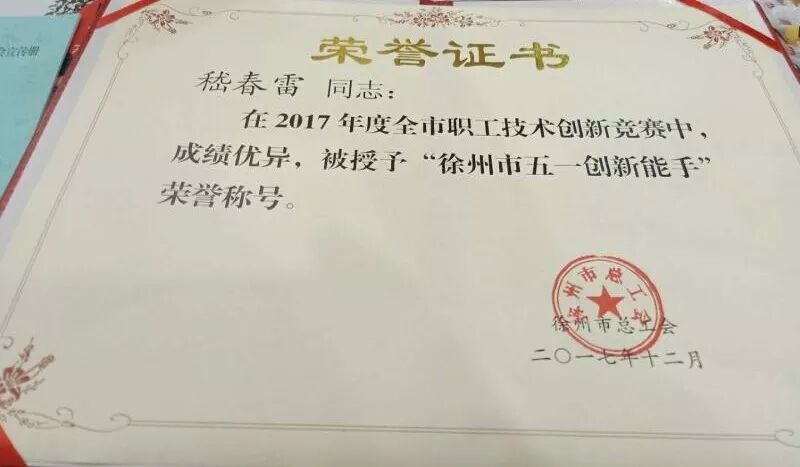 荣誉证书
嵇春雷 同志：
在2017年度全市职工技术创新竞赛中，
成绩优异，被授予“徐州市五一创新能手”
荣誉称号。
徐州市总工会
徐州市总工会
二〇一七年十二月
会宣传册